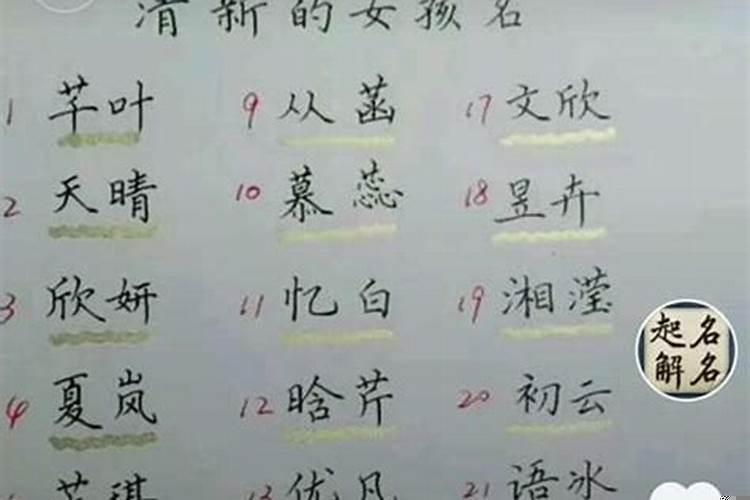 清新的女孩名
1 芊叶 9 从菡 17 文欣
2 天晴 10 慕蕊 18 昱卉
3 欣妍 11 忆白 19 湘滢
4 夏岚 12 晗芹 20 初云
琪 13 优凡 21 语冰
起名
解名